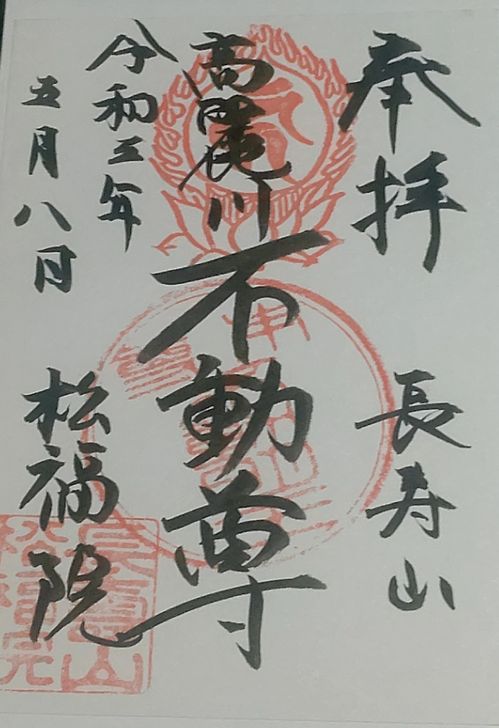 奉拝
長寿山
高麗川
不動尊
令和三年
五月八日
松福院